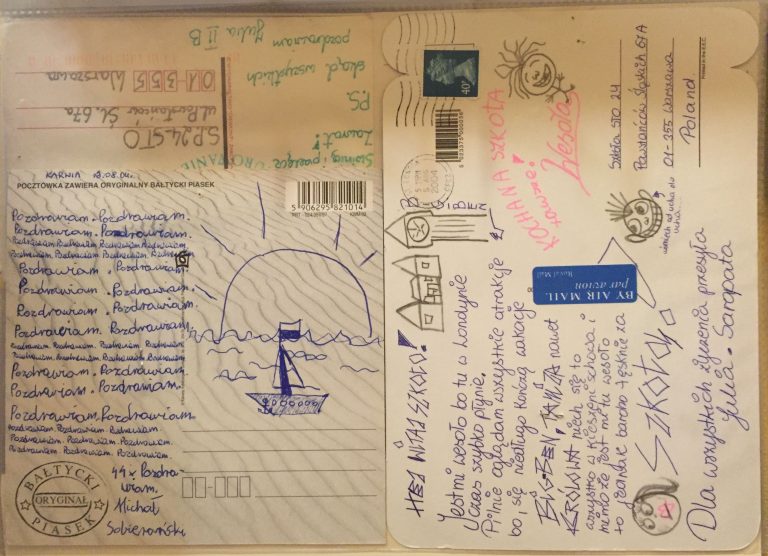 Zawrat!
P.S.
skąd wszystkich
pozdrawiam Julia II B
SP 24 STO
ul. Powstańców Śl. 67a
01 355 Warszawa
KARWIA 18.08.04.
POCZTÓWKA ZAWIERA ORYGINALNY BAŁTYCKI PIASEK
5 906295 821014
Pozdrawiam. Pozdrawiam.
Pozdrawiam. Pozdrawiam.
Pozdrawiam. Pozdrawiam. Pozdrawiam.
Pozdrawiam. Pozdrawiam. Pozdrawiam.
Pozdrawiam. Pozdrawiam.
Pozdrawiam. Pozdrawiam.
Pozdrawiam. Pozdrawiam.
Pozdrawiam. Pozdrawiam.
Pozdrawiam. Pozdrawiam. Pozdrawiam.
Pozdrawiam. Pozdrawiam. Pozdrawiam.
Pozdrawiam. Pozdrawiam.
Pozdrawiam. Pozdrawiam.
Pozdrawiam, Pozdrawiam.
Pozdrawiam. Pozdrawiam. Pozdrawiam.
Pozdrawiam. Pozdrawiam. Pozdrawiam.
Pozdrawiam. Pozdrawiam. Pozdrawiam.
44 x Pozdra-
wiam.
Michał
BAŁTYCKI
ORYGINAŁ
PIASEK
HEJ WITAJ SZKOŁO!
Jest mi wesoło bo tu w Londynie
czas szybko płynie.
Pilnie oglądam wszystkie atrakcje
bo, się niedługo kończą wakacje
BIG BEN, TAMIZA nawet
KRÓLOWA niech się to
wszystko w kieszeni schowa i
mimo że jest mi tu wesoło
to zawsze bardzo tęsknię za
SZKOŁĄ
Dla wszystkich życzenia przesyła
Julia. Sarapata
BIG BEN
KOCHANA SZKOŁA
zawsze!
Wesoła
BY AIR MAIL
par avion
Royal Mail
uśmiech od ucha do
ucha
2004
40
Szkoła STO 24
Powstańców Śląskich 67A
01-355 Warszawa
Poland